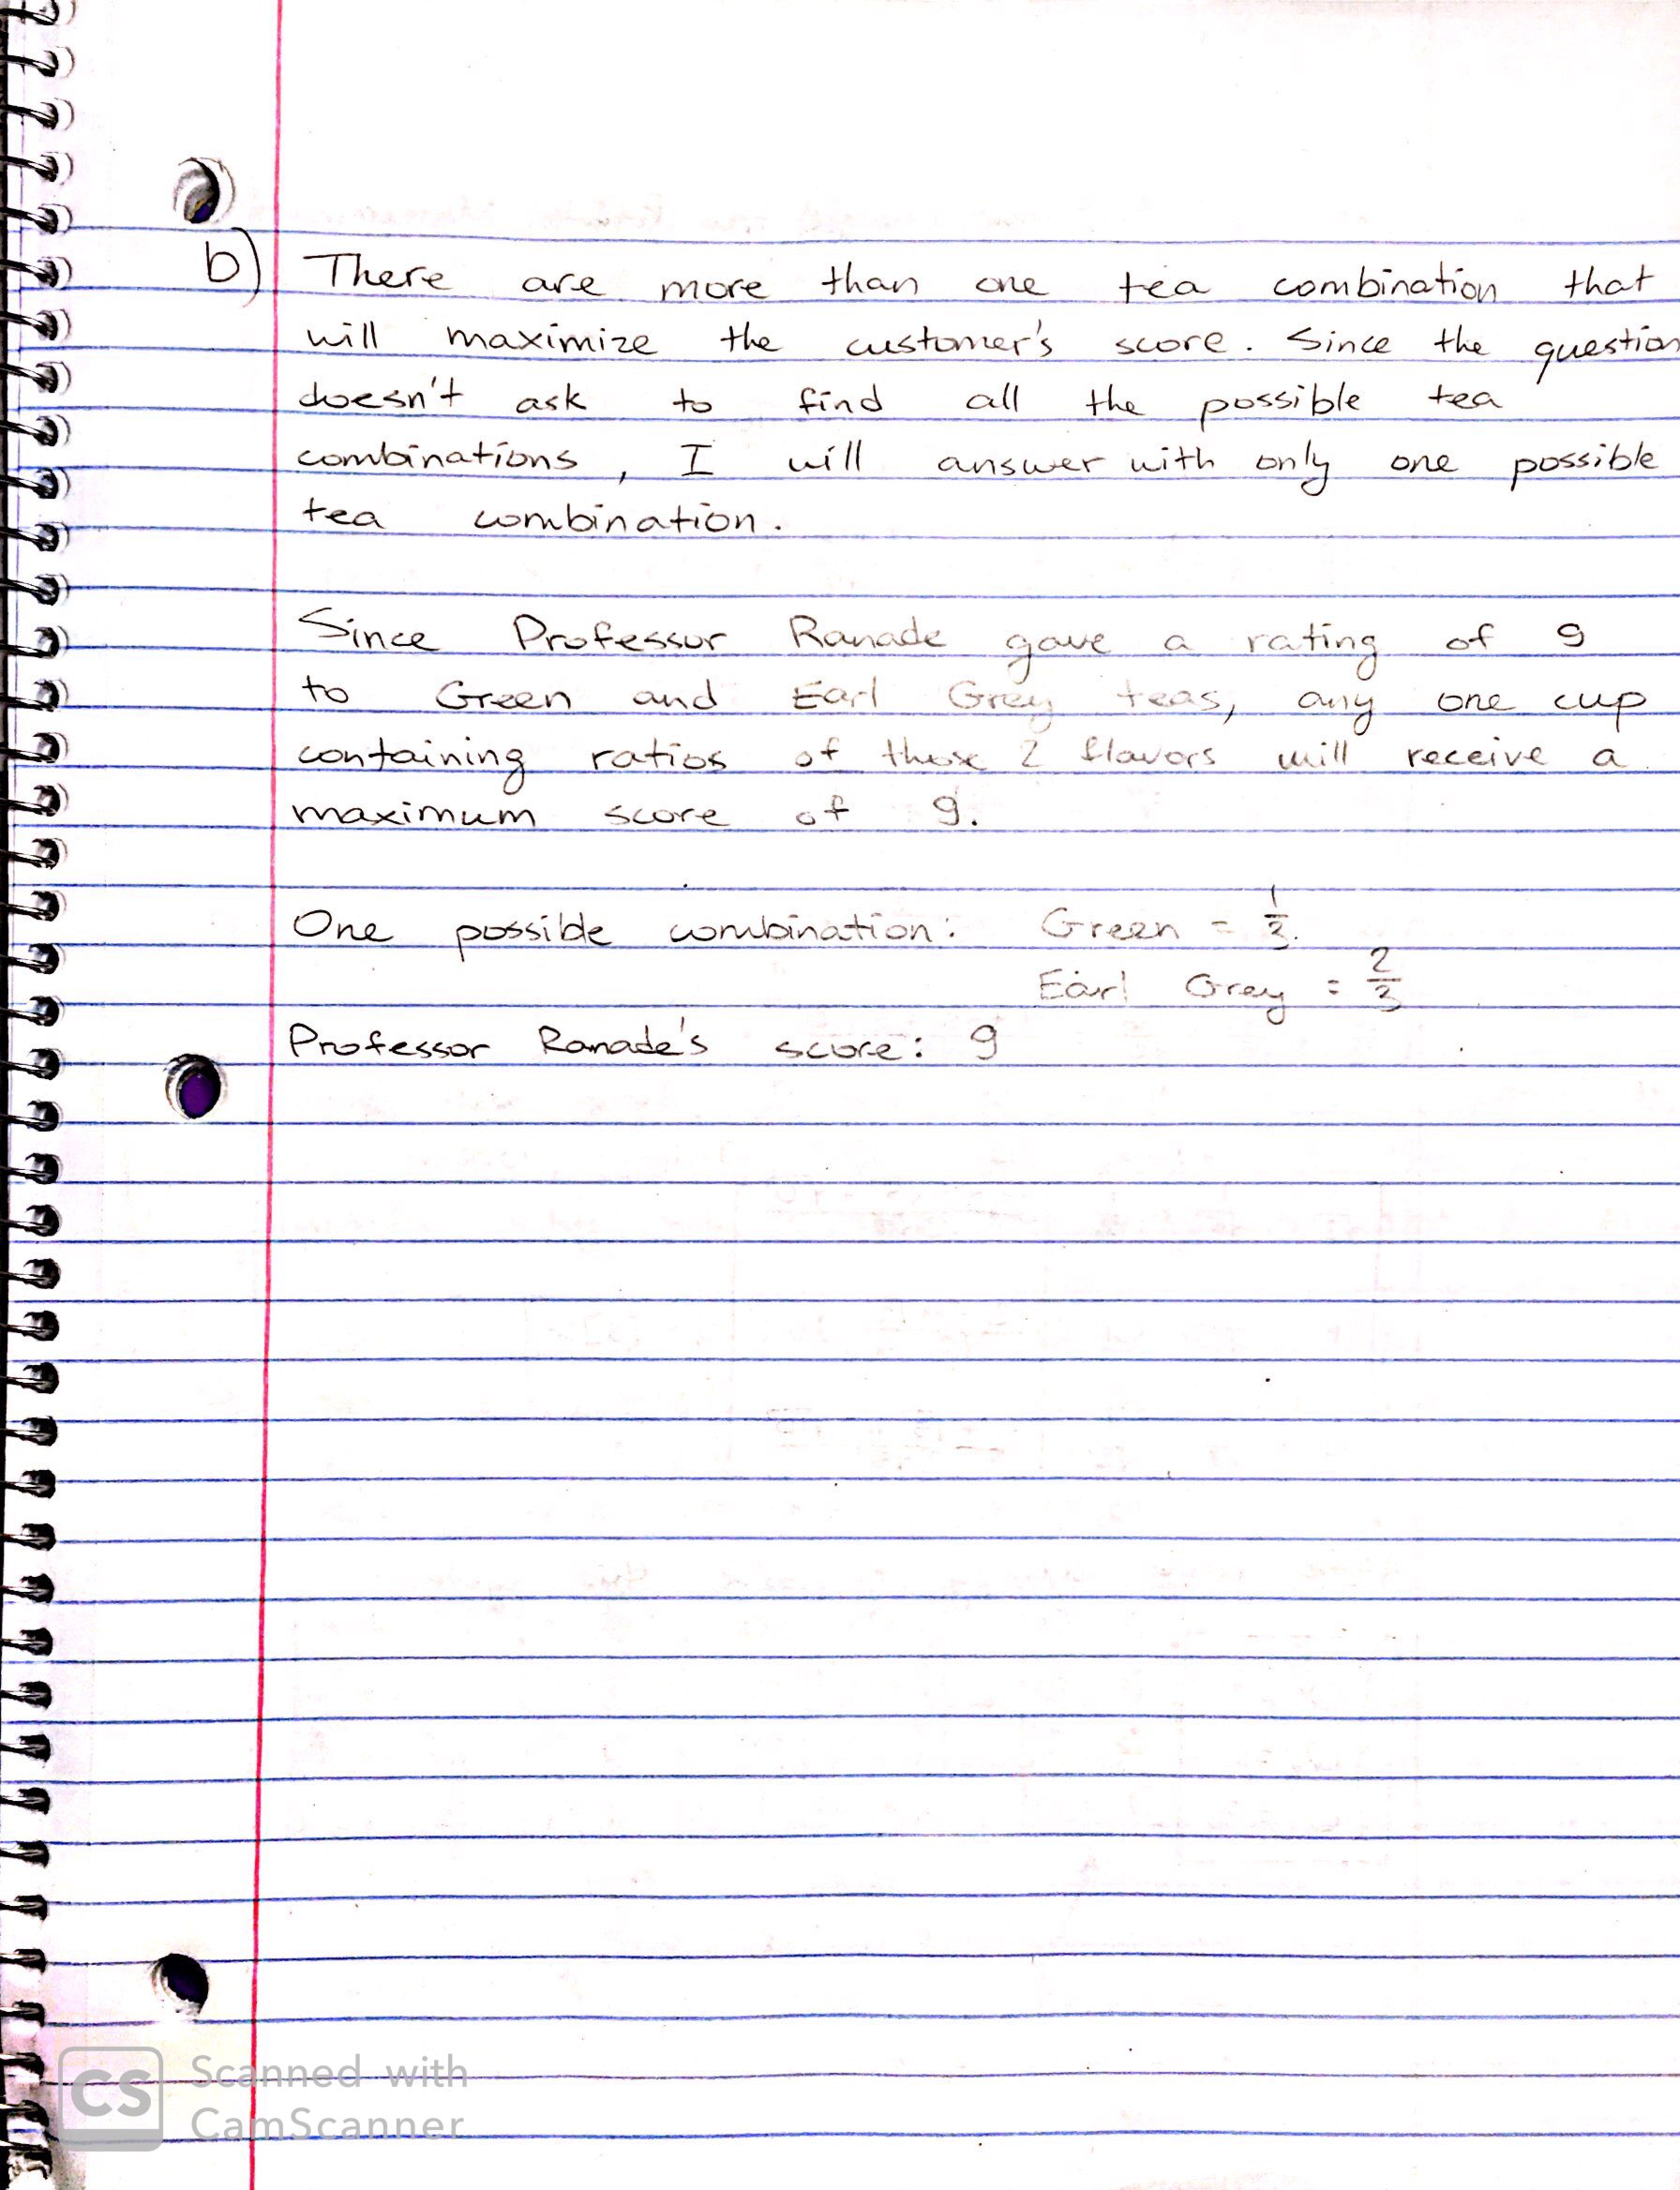 b) There are more than one tea combination that
will maximize the customer's score. Since the question
doesn't ask to find all the possible tea
combinations, I will answer with only one possible
tea combination.
Since Professor Ranade gave a rating of 9
to Green and Earl Grey teas, any one cup
containing ratios of these 2 flavors will receive a
maximum score of 9.
One possible combination: Green = 1/3.
Earl Grey = 2/3
Professor Ranade's score: 9
CS Scanned with
CamScanner